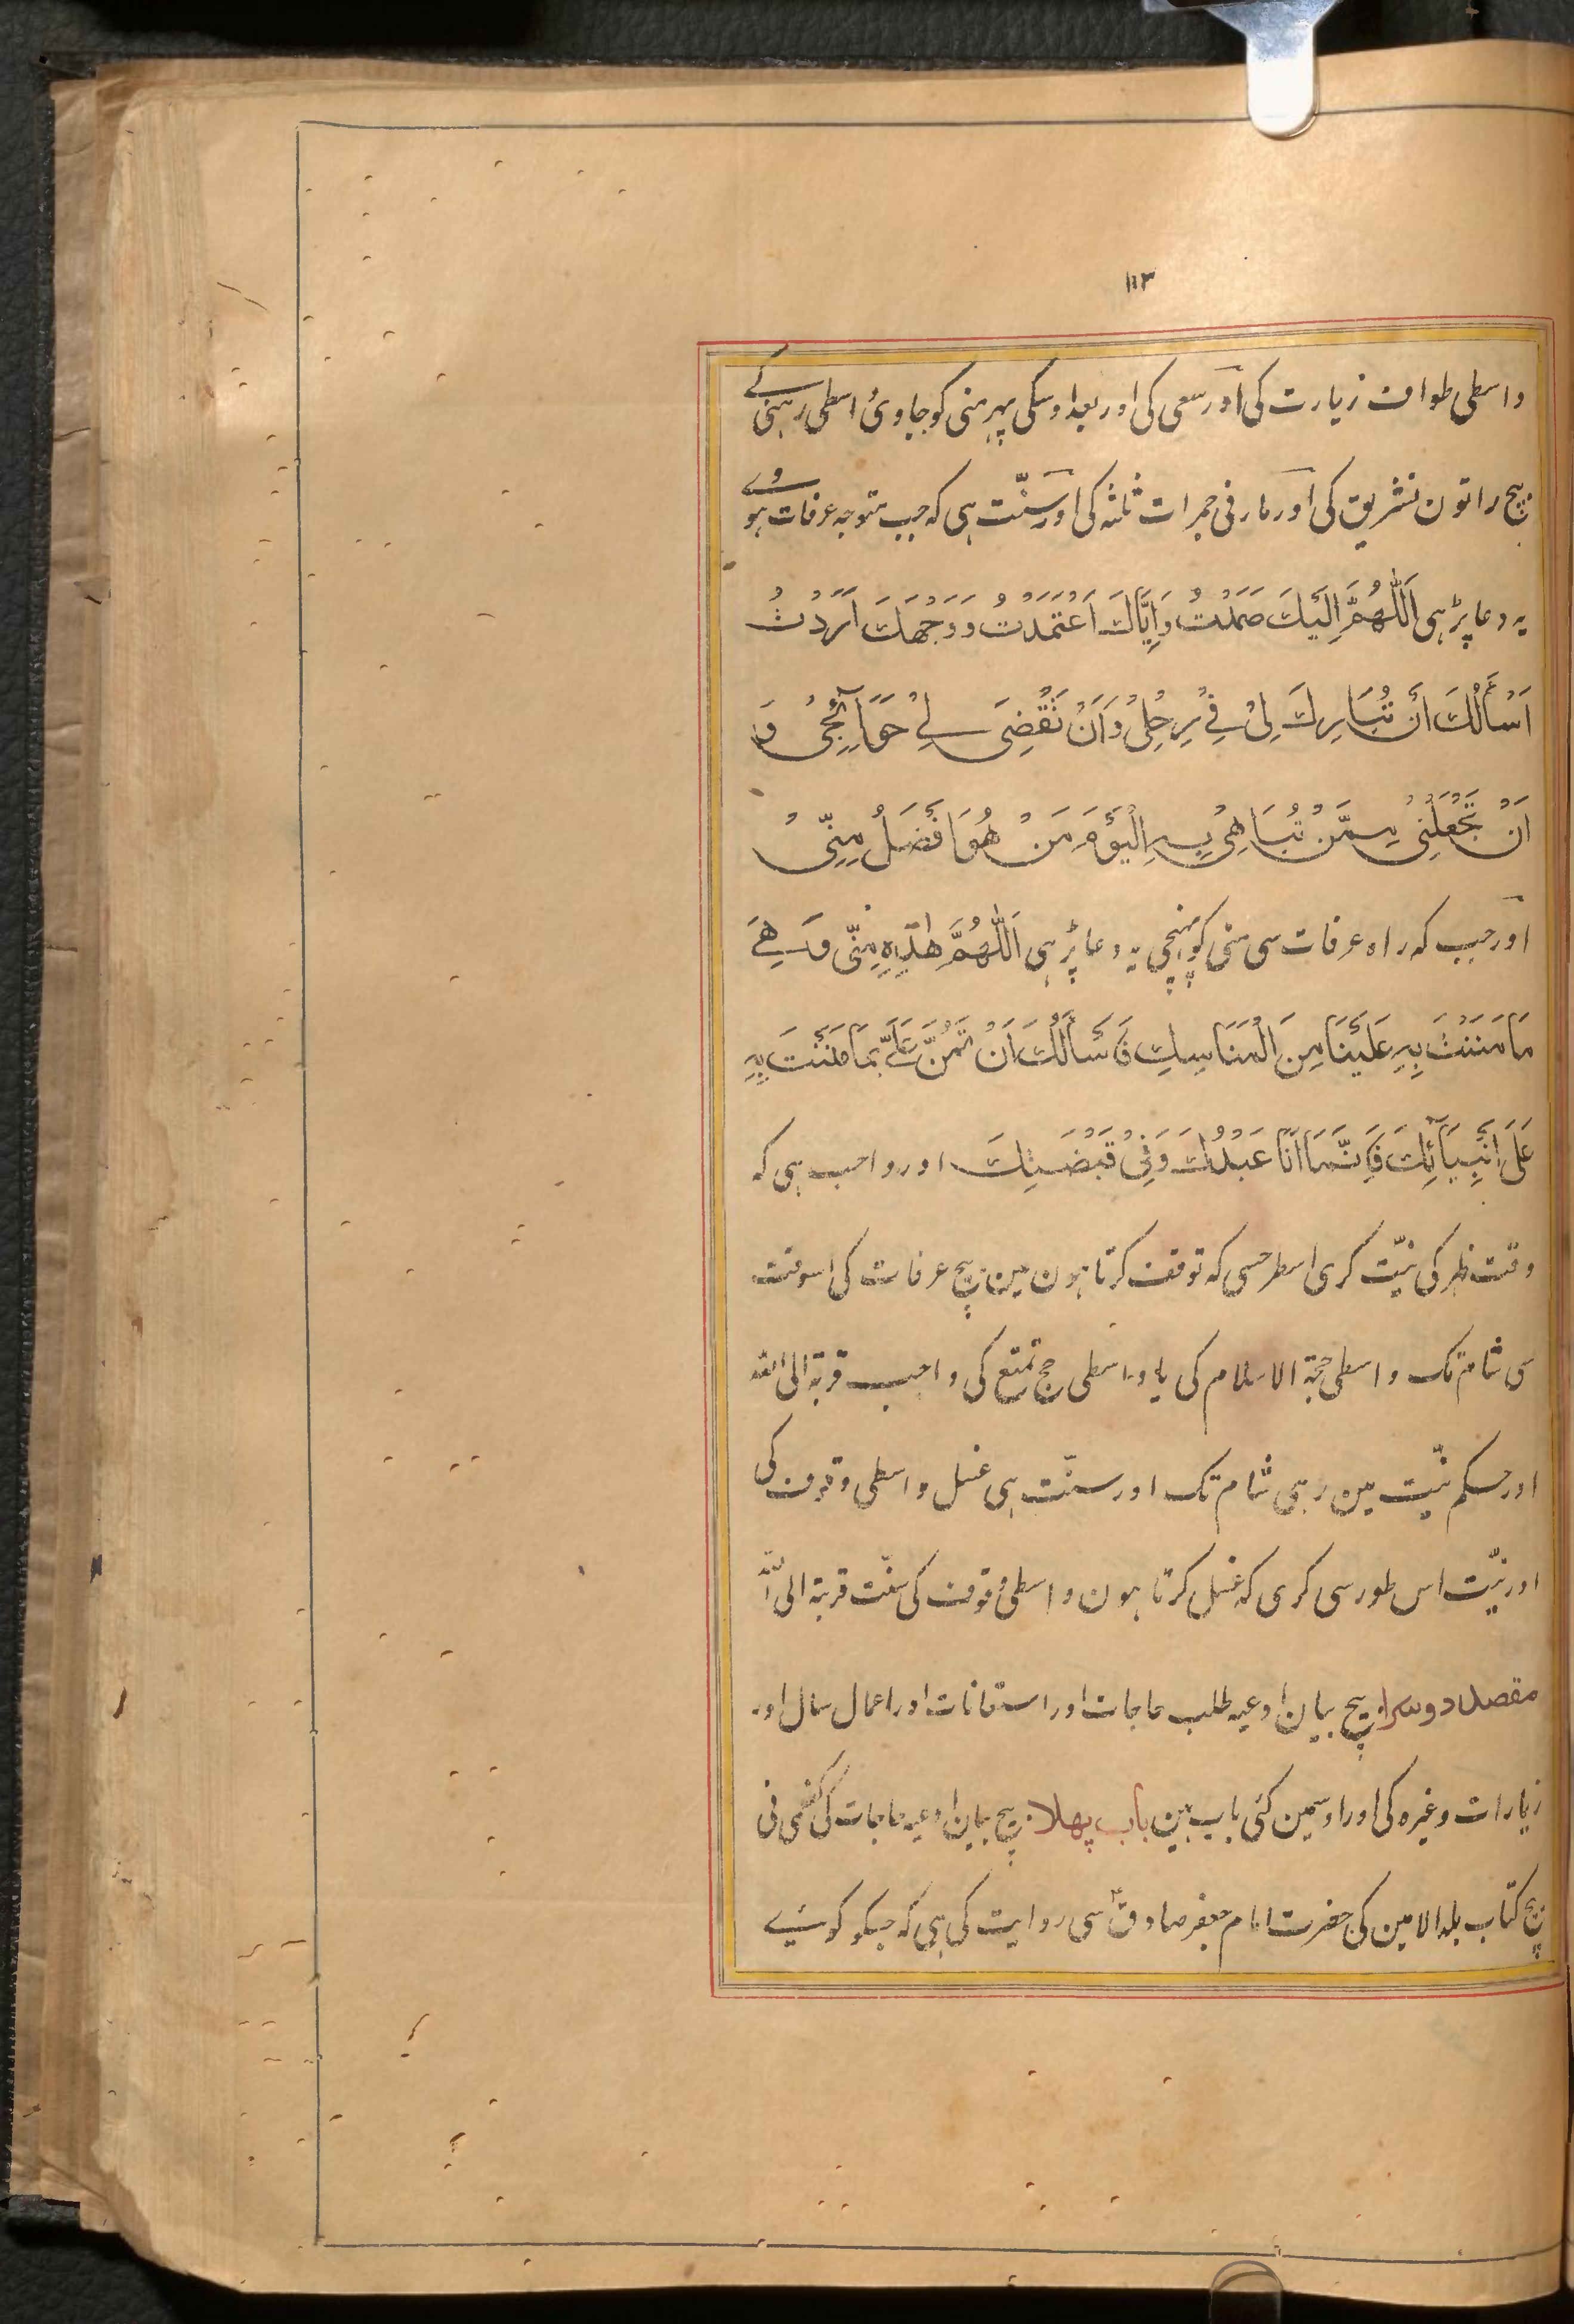 ١١٣
واسطی طواف زیارت کی اور سعی کی اور بعد اوسکی پہر منی کو جاوی واسطی رہنی کے
بیچ راتون تشریق کی اور مارنی جمرات ثلثہ کی اور سنّت ہی کہ جب متوجہ عرفات ہووے
یہ دعا پڑہی اَللّٰهُمَّ اِلَيْكَ صَمَدْتُ وَاِيَّاكَ اعْتَمَدْتُ وَوَجْهَكَ اَرَدْتُ
اَسْأَلُكَ اَنْ تُبَارِكَ لِيْ فِيْ رِحْلِيْ وَاَنْ تَقْضِيَ لِيْ حَوَآئِجِيْ وَ
اَنْ تَجْعَلَنِيْ مِمَّنْ تُبَاهِيْ بِهِ الْيَوْمَ مَنْ هُوَ اَفْضَلُ مِنِّيْ
اور جب کہ راہ عرفات سی منی کو پہنچی یہ دعا پڑہی اَللّٰهُمَّ هٰذِهِ مِنٰى وَهِيَ
مَا مَنَنْتَ بِهِ عَلَيْنَا مِنَ الْمَنَاسِكِ فَاَسْأَلُكَ اَنْ تَمُنَّ عَلَيَّ بِمَا مَنَنْتَ بِهِ
عَلَى اَنْبِيَآئِكَ فَاِنَّمَا اَنَا عَبْدُكَ وَفِيْ قَبْضَتِكَ اور واجب ہی کہ
وقت ظہر کی نیّت کری اسطرحسی کہ توقف کرتا ہون مین بیچ عرفات کی اسوقت
سی شام تک واسطی حجۃ الاسلام کی یا واسطی حج تمتع کی واجب قربۃ الی اللہ
اور حکم نیّت مین رہی شام تک اور سنّت ہی غسل واسطی وقوف کی
اور نیّت اس طور سی کری کہ غسل کرتا ہون واسطی وقوف کی سنّت قربۃ الی اللہ
مقصد دوسرا بیچ بیان ادعیہ طلب حاجات اور استعانات اور اعمال سال اور
زیارات وغیرہ کی اور اوسمین کئی باب ہین باب پہلا بیچ بیان ادعیہ حاجات کی کفعمی نی
بیچ کتاب بلد الامین کی حضرت امام جعفر صادقؑ سی روایت کی ہی کہ جسکو کوئے